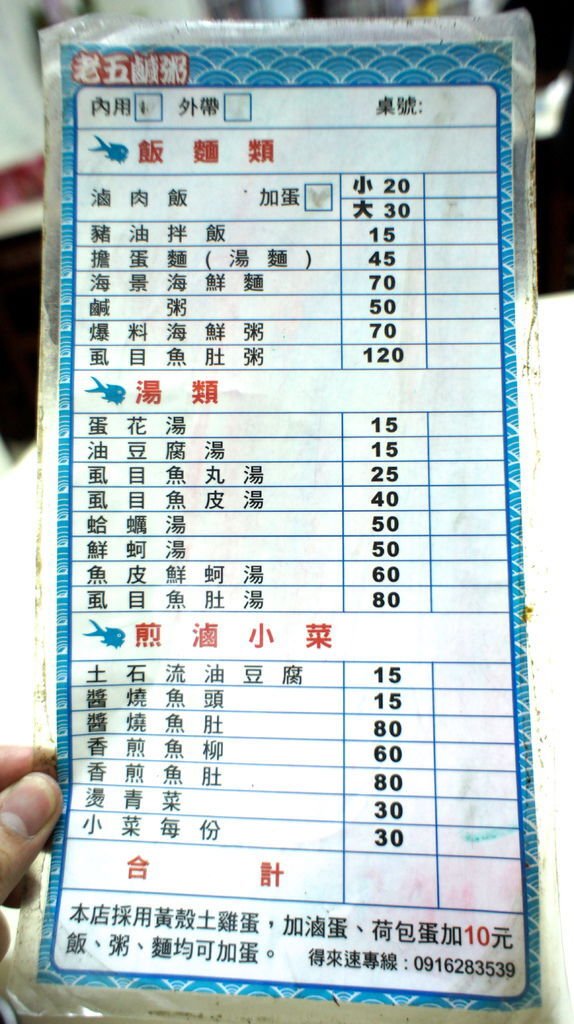 老五鹹粥
內用 外帶 桌號:
飯麵類
滷肉飯 加蛋 小 20
大 30
豬油拌飯 15
擔蛋麵(湯麵) 45
海景海鮮麵 70
鹹粥 50
爆料海鮮粥 70
虱目魚肚粥 120
湯類
蛋花湯 15
油豆腐湯 15
虱目魚丸湯 25
虱目魚皮湯 40
蛤蠣湯 50
鮮蚵湯 50
魚皮鮮蚵湯 60
虱目魚肚湯 80
煎滷小菜
土石流油豆腐 15
醬燒魚頭 15
醬燒魚肚 80
香煎魚柳 60
香煎魚肚 80
燙青菜 30
小菜每份 30
合計
本店採用黃殼土雞蛋,加滷蛋、荷包蛋加10元
飯、粥、麵均可加蛋。 得來速專線:0916283539